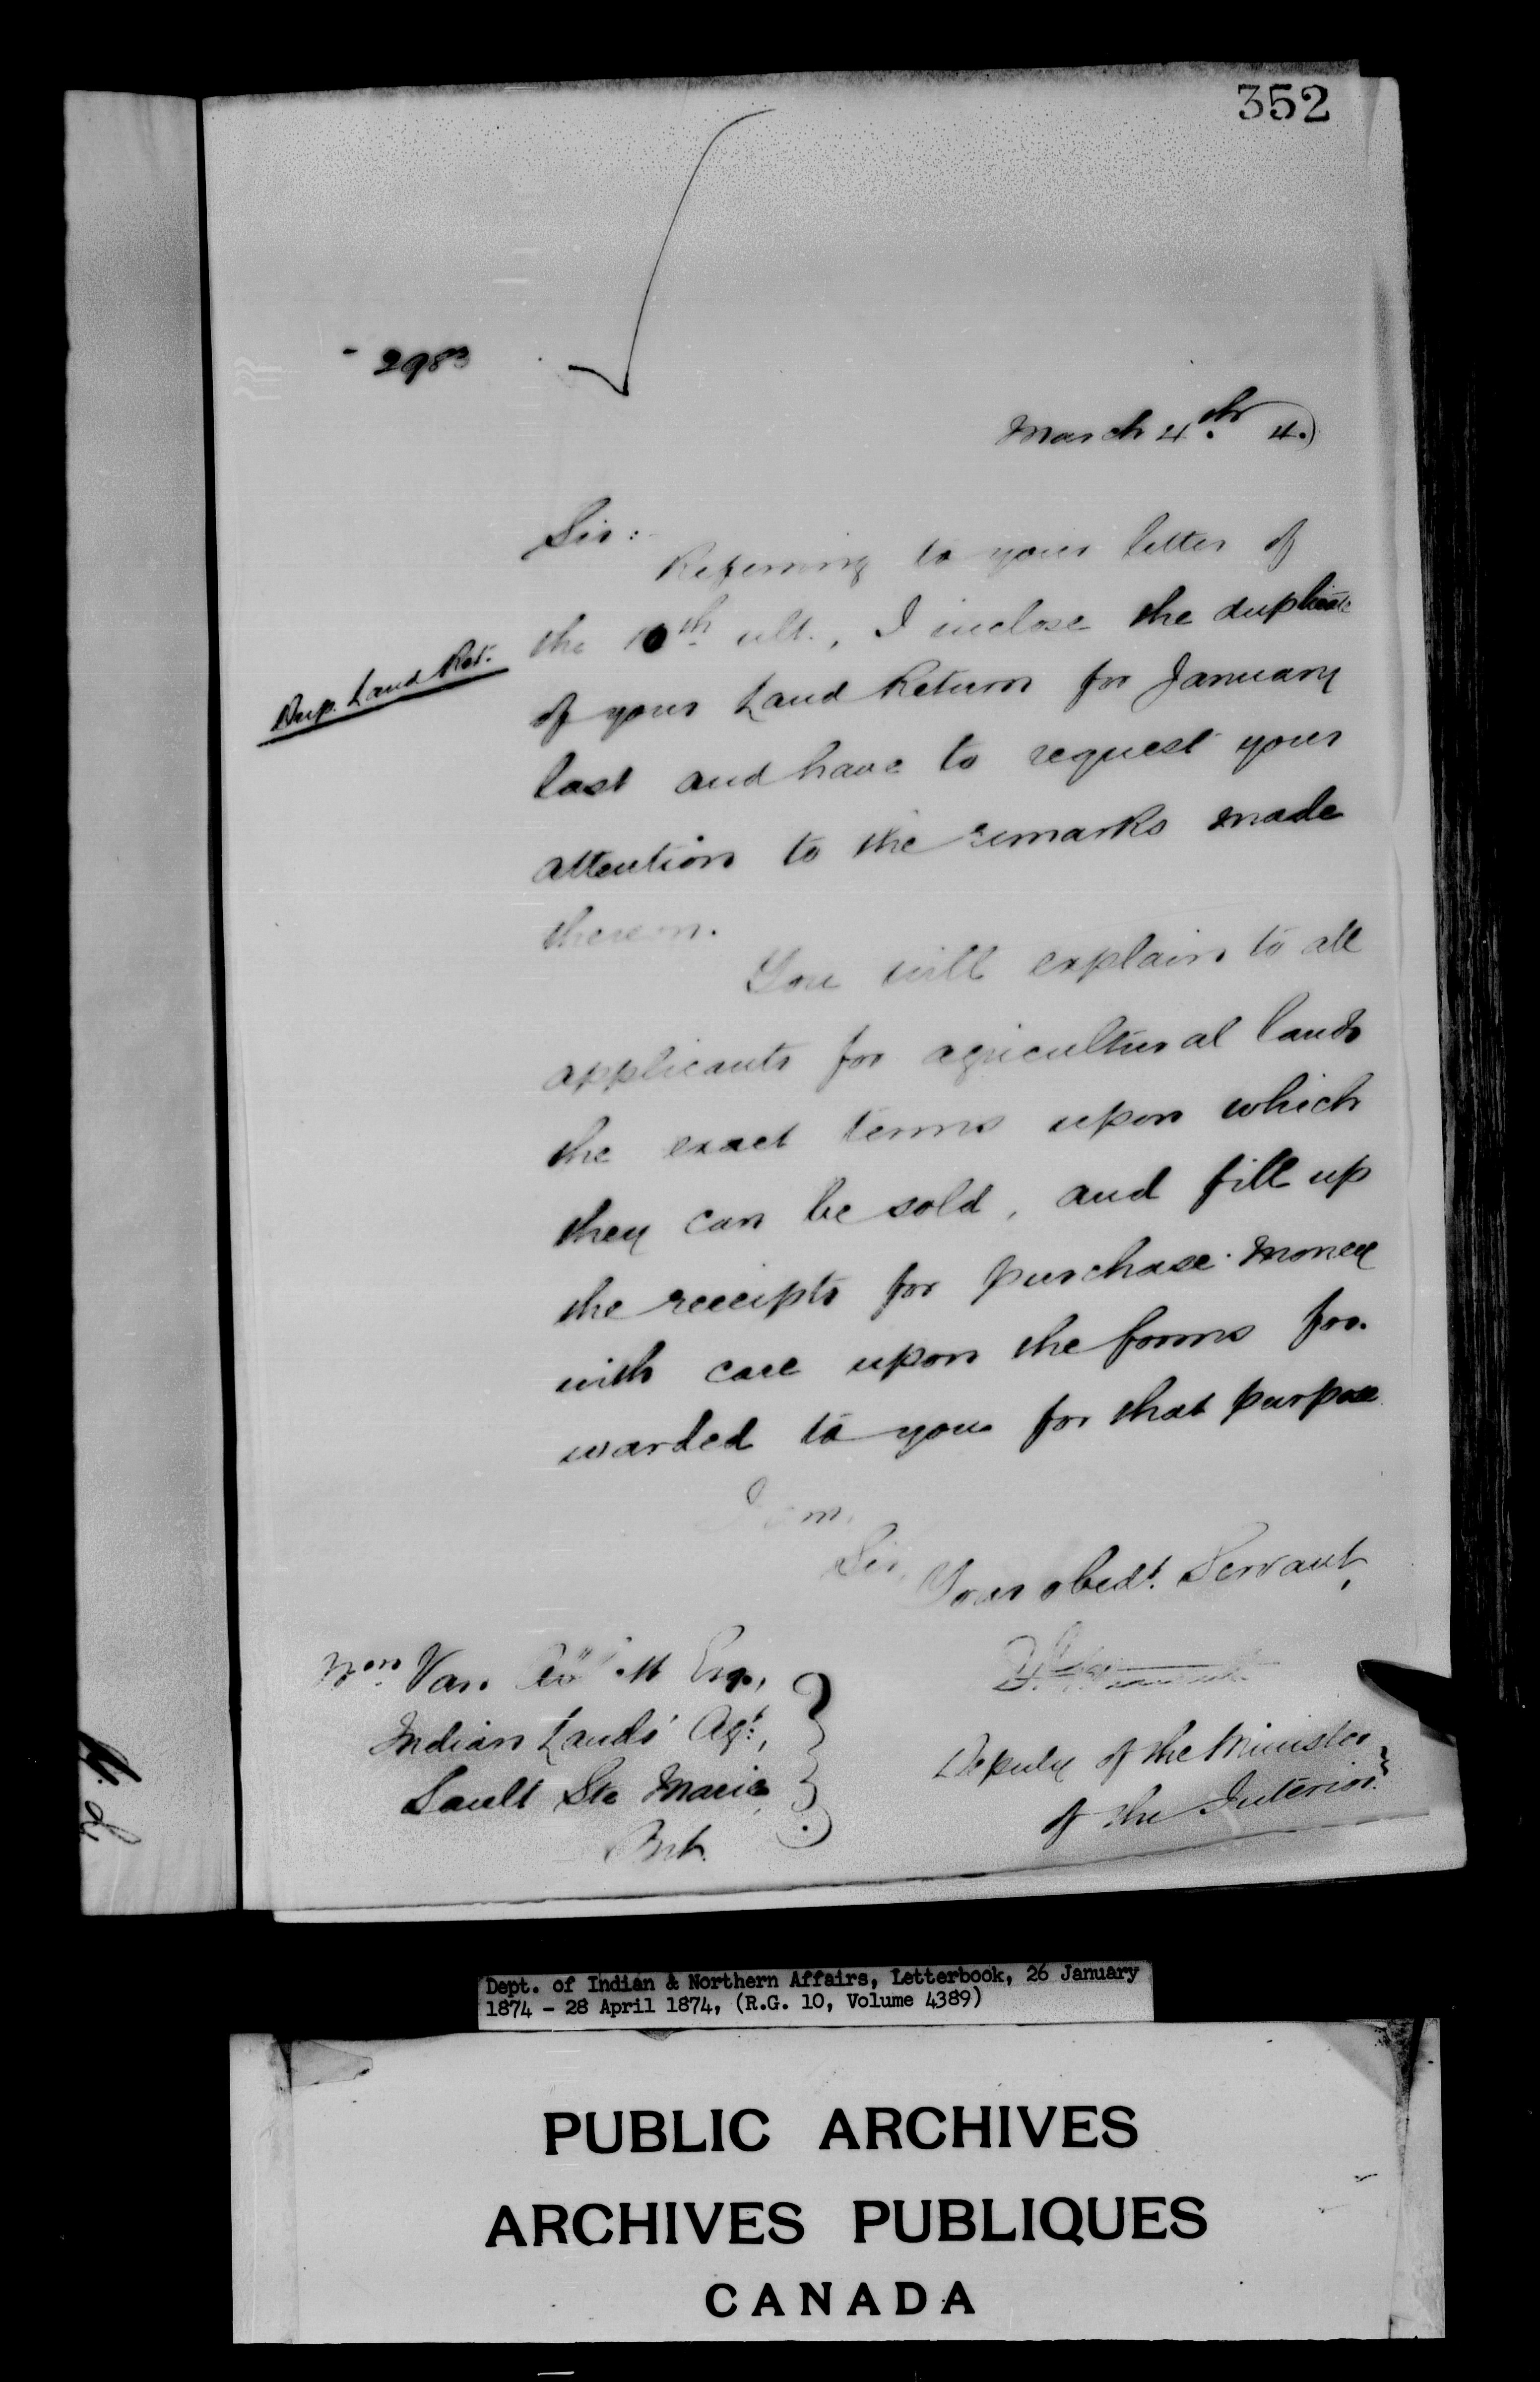 352
2983
March 4th. 4.)
Sir:
Referring to your letter of
the 10th ult., I inclose the duplicate
Dup. Land Ret.
of your Land Return for January
last and have to request your
attention to the remarks made
thereon.
You will explain to all
applicants for agricultural lands
the exact terms upon which
they can be sold, and fill up
the receipts for purchase money
with care upon the forms for-
warded to you for that purpose
I am,
Sir,
Your obedt. Servant,
Wm. Van Esq.,
Indian Lands Agt.,
Sault Ste Marie,
Ont.
Deputy of the Minister
of the Interior.
Dept. of Indian & Northern Affairs, Letterbook, 26 January
1874 - 28 April 1874, (R.G. 10, Volume 4389)
PUBLIC ARCHIVES
ARCHIVES PUBLIQUES
CANADA